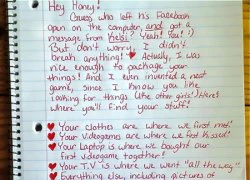 Hey Honey!
Guess who left his Facebook
open on the computer and got a
message from Kelsi. Yeah! You!
But don't worry, I didn't
break anything! Actually, I was
nice enough to package your
things! And I even invented a neat
game, since I know you like
looking for things like other girls! Here's
where you'll find your stuff!
Your clothes are where we first met!
Your videogames are where we first kissed!
Your Laptop is where we bought our
first videogame together!
Your T.V is where we went "all the way"
Everything else, including pictures of